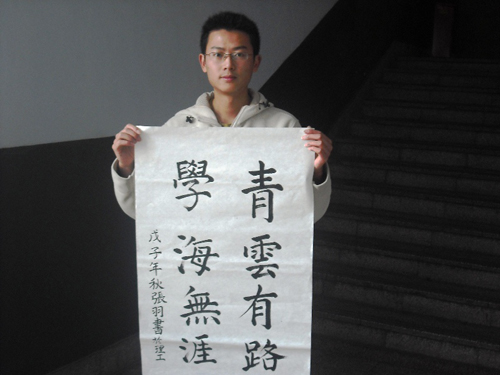 青雲有路
學海無涯
戊子年秋張羽書於理工